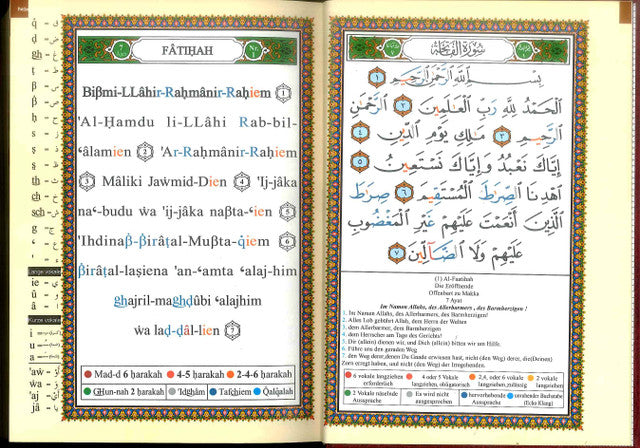 FÂTIḤAH
Biβmi-LLâhir-Raḥmânir-Raḥiem 1
'Al-Ḥamdu li-LLâhi Rab-bil-
'âlamien 2 'Ar-Raḥmânir-Raḥiem
3 Mâliki Jaẇmid-Dien 4 'Ij-jâka
naʿ-budu ẇa 'ij-jâka naβta-ʿien 5
'Ihdinaβ̣-β̣irâṭal-Muβta-q̇iem 6
β̣irâṭal-laṣiena 'an-ʿamta ʿalaj-him
ghajril-maghḍûbi ʿalajhim
ẇa laḍ-ḍâl-lien 7
Mad-d 6 ḥarakah
4-5 ḥarakah
2-4-6 ḥarakah
GḤun-nah 2 ḥarakah
'Idghâm
Tafchiem
Qalqalah
Lange vokale
ie
û
â
Kurze vokale
i
u
a
سُورَةُ الفَاتِحَة
بِسْمِ اللَّهِ الرَّحْمَٰنِ الرَّحِيمِ ١
الْحَمْدُ لِلَّهِ رَبِّ الْعَالَمِينَ ٢ الرَّحْمَٰنِ
الرَّحِيمِ ٣ مَالِكِ يَوْمِ الدِّينِ ٤
إِيَّاكَ نَعْبُدُ وَإِيَّاكَ نَسْتَعِينُ ٥
اهْدِنَا الصِّرَاطَ الْمُسْتَقِيمَ ٦ صِرَاطَ
الَّذِينَ أَنْعَمْتَ عَلَيْهِمْ غَيْرِ الْمَغْضُوبِ
عَلَيْهِمْ وَلَا الضَّالِّينَ ٧
(1) Al-Faatihah
Die Eröffnende
Offenbart zu Makka
7 Ayat
Im Namen Allahs, des Allerbarmers , des Barmherzigen !
1. Im Namen Allahs, des Allerbarmers, des Barmherzigen!
2. Alles Lob gebührt Allah, dem Herrn der Welten
3. dem Allerbarmer, dem Barmherzigen
4. dem Herrscher am Tage des Gerichts!
5. Dir (allein) dienen wir, und Dich (allein) bitten wir um Hilfe.
6. Führe uns den geraden Weg
7. den Weg derer, denen Du Gnade erwiesen hast, nicht (den Weg) derer, die(Deinen)
Zorn erregt haben, und nicht (den Weg) der Irregehenden.
6 vokale langziehen erforderlich
4 oder 5 Vokale langziehen, obligatorisch
2,4, oder 6 vokale langziehen,zulässig
2 vokale langziehen
2 Vokale näselnde Aussprache
Es wird nicht ausgesprochen
hervorhebende Aussprache
(Echo Klang)